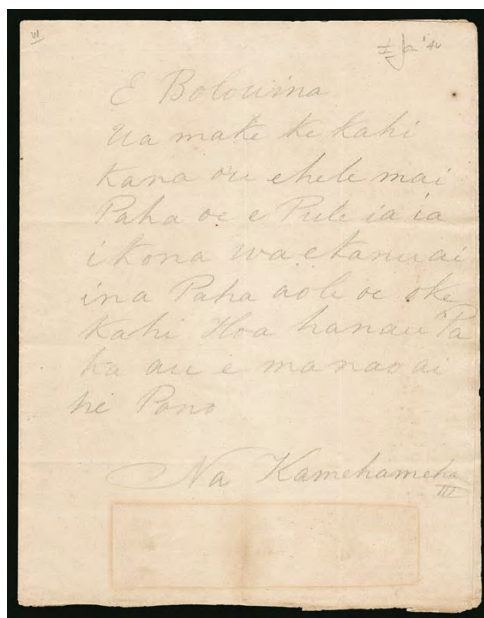 E Bolouina
Ua make ke kahi
kana ou ehele mai
Paha oe e Pule ia ia
i kona wa ekanu ai
ina Paha aole oe oke
kahi Hoa hanau Pa
ha au e manao ai
he Pono
Na Kamehameha
III